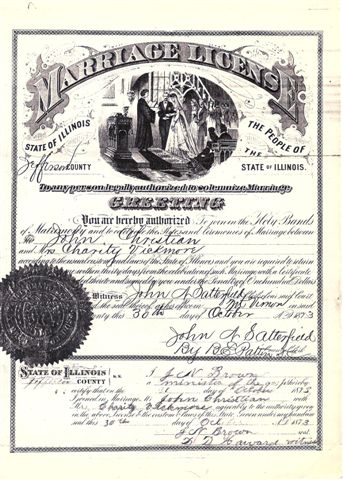 MARRIAGE LICENSE
STATE OF ILLINOIS
Jefferson COUNTY
THE PEOPLE OF
THE
STATE OF ILLINOIS.
To any person legally authorized to solemnize Marriage
GREETING
You are hereby authorized To join in the Holy Bands
of Matrimony and to celebrate the Rites and Ceremonies of Marriage between
Mr John Christian
and Mrs Charity Vickmore
according to the usual custom and laws of the State of Illinois and you are required to return
within thirty days from the celebration of such Marriage with a Certificate
under the Penalty of One Hundred Dollars
Witness John A Satterfield Clerk of our said Court
and the seal thereof at his office in Mt Vernon in said
County this 30th day of October A.D. 1873
John A Satterfield
By
STATE OF ILLINOIS
Jefferson COUNTY
S.S.
I J N Brown
a minister of the gospel hereby
certify that on the day of October 1873
I joined in Marriage Mr. John Christian with
Mrs. Charity Vickmore agreeably to the authority given
in the above License and the customs and laws of this State. Given under my hand
and seal this 30th day of October A.D. 1873
J N Brown seal
D D Howard witness